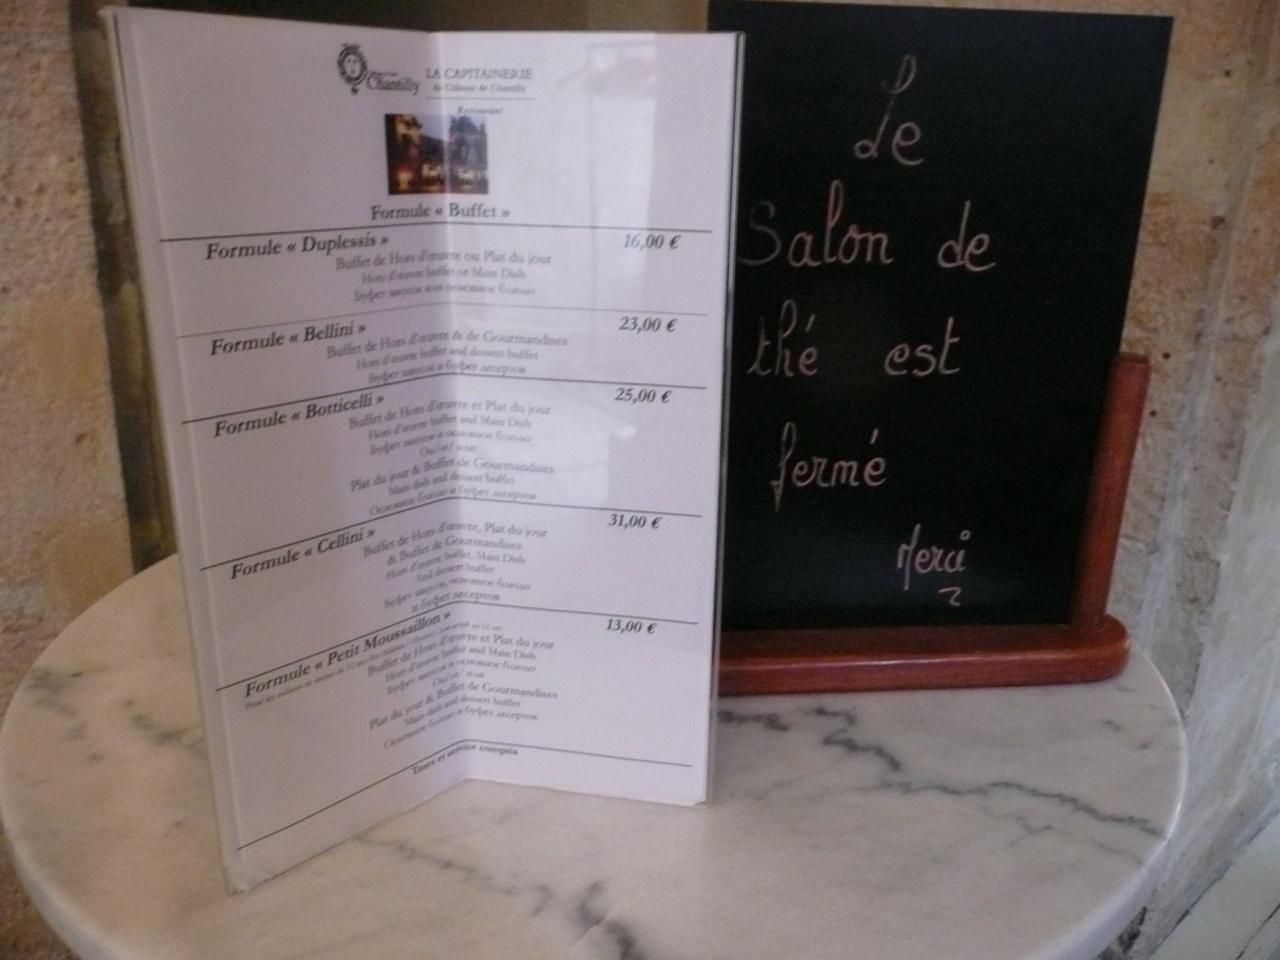 Chantilly
LA CAPITAINERIE
du Château de Chantilly
Restaurant
Formule « Buffet »
Formule « Duplessis » 16,00 €
Buffet de Hors d'œuvre ou Plat du jour
Hors d'œuvre buffet or Main Dish
Буфет закусок или основное блюдо
Formule « Bellini » 23,00 €
Buffet de Hors d'œuvre & de Gourmandises
Hors d'œuvre buffet and dessert buffet
Буфет закусок и буфет десертов
Formule « Botticelli » 25,00 €
Buffet de Hors d'œuvre et Plat du jour
Hors d'œuvre buffet and Main Dish
Буфет закусок и основное блюдо
Ou/or/ или
Plat du jour & Buffet de Gourmandises
Main dish and dessert buffet
Основное блюдо и буфет десертов
Formule « Cellini » 31,00 €
Buffet de Hors d'œuvre, Plat du jour
& Buffet de Gourmandises
Hors d'œuvre buffet, Main Dish
And dessert buffet
Буфет закусок, основное блюдо
и буфет десертов
Formule « Petit Moussaillon » 13,00 €
Buffet de Hors d'œuvre et Plat du jour
Hors d'œuvre buffet and Main Dish
Буфет закусок и основное блюдо
Ou/or/ или
Plat du jour & Buffet de Gourmandises
Main dish and dessert buffet
Основное блюдо и буфет десертов
Taxes et service compris
Le
Salon de
thé est
fermé
Merci